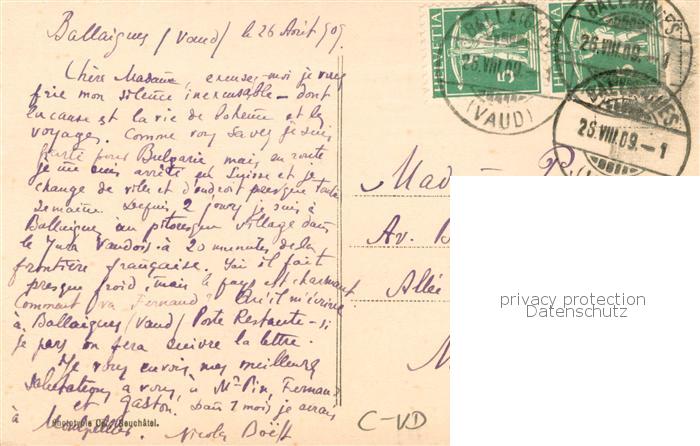 Ballaigues (Vaud) le 26 Août 909.
Chère Madame, excusez-moi je vous
prie mon silence inexcusable - dont
la cause et la vie de bohème et les
voyages. Comme vous savez je suis
parti pour Bulgarie mais en route
je me suis arrêté en Suisse et je
change de ville et d'endroit presque toute
semaine. Depuis 2 jours je suis à
Ballaigues un pitoresque village dans
le Jura Vaudois à 20 minutes de la
frontière française. Ici il fait
presque froid, mais le pays est charmant.
Comment va Fernand? Qu'il m'écrive
à Ballaigues (Vaud) Poste Restante - si
je pars on fera suivre la lettre.
Je vous envois mes meilleures
salutations à vous, à Mr Pin, Fernand
et Gaston. Dans 1 mois je serais
à Montpellier. Nicolas
Phototypie Co., Neuchâtel.
HELVETIA 5
BALLAIGUES
25.VIII.09
(VAUD)
BALLAIGUES
26.VIII.09. 1
BALLAIGUES
25.VIII.09.-1
Madame P.
Av. B
Allée
M
C-VD
privacy protection
Datenschutz